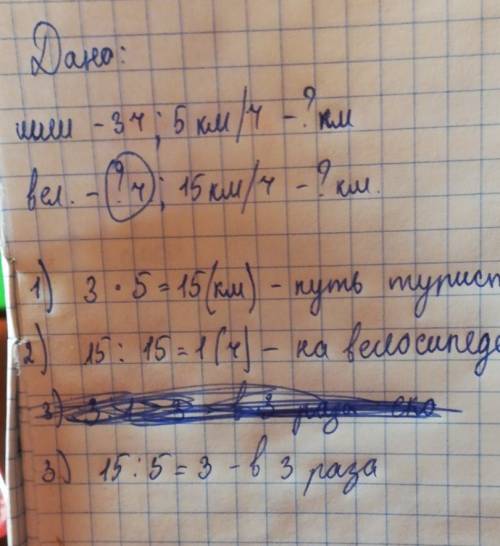 Дано:
- 3ч; 5 км/ч - ? км
вел. - ? ч; 15 км/ч - ? км.
1) 3 · 5 = 15 (км) - путь турист
2) 15 : 15 = 1 (ч) - на велосипеде
3) в 3 раза ско
3) 15 : 5 = 3 - в 3 раза